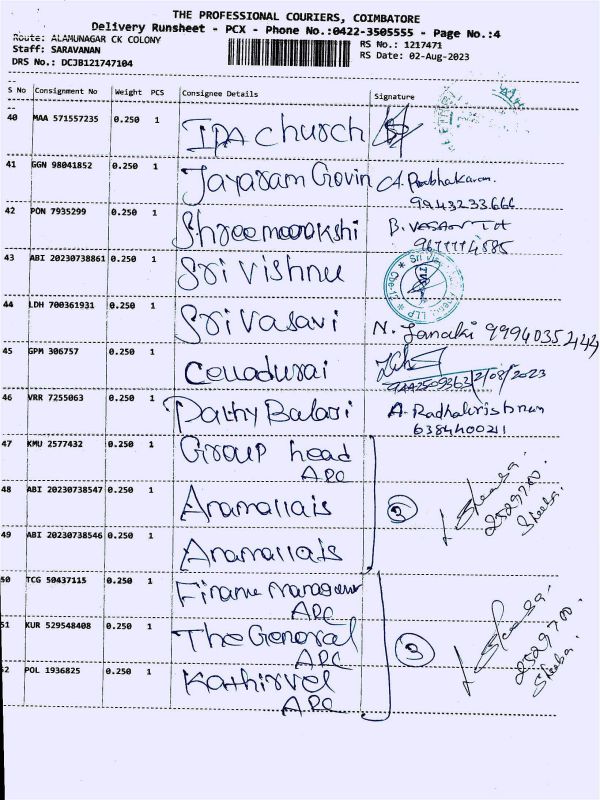 THE PROFESSIONAL COURIERS, COIMBATORE
Delivery Runsheet - PCX - Phone No.:0422-3505555 - Page No.:4
Route: ALAMUNAGAR CK COLONY
RS No.: 1217471
Staff: SARAVANAN
RS Date: 02-Aug-2023
DRS No.: DCJB121747104
S No Consignment No Weight PCS Consignee Details Signature
40 MAA 571557235 0.250 1 IPA church
41 GGN 98041852 0.250 1 Jayaram Govin A. Prabhakaran
9943233666
42 PON 7935299 0.250 1 Shreemeenakshi B. VASANTH
43 ABI 20230738861 0.250 1 Sri Vishnu
44 LDH 700361931 0.250 1 Sri Vasavi N. Janaki
45 GPM 306757 0.250 1 Celladurai
2/08/2023
46 VRR 7255063 0.250 1 Pathy Balaji A. Radhakrishnan
6384400211
47 KMU 2577432 0.250 1 Group head
APC
48 ABI 20230738547 0.250 1 Anamallais
3 Sheeba.
2529700.
Sheeba.
49 ABI 20230738546 0.250 1 Anamallais
50 TCG 50437115 0.250 1 Finane manager
APC
51 KUR 529548408 0.250 1 The General
APC
3 Sheeba.
2529700.
Sheeba.
52 POL 1936825 0.250 1 Kathirvel
APC